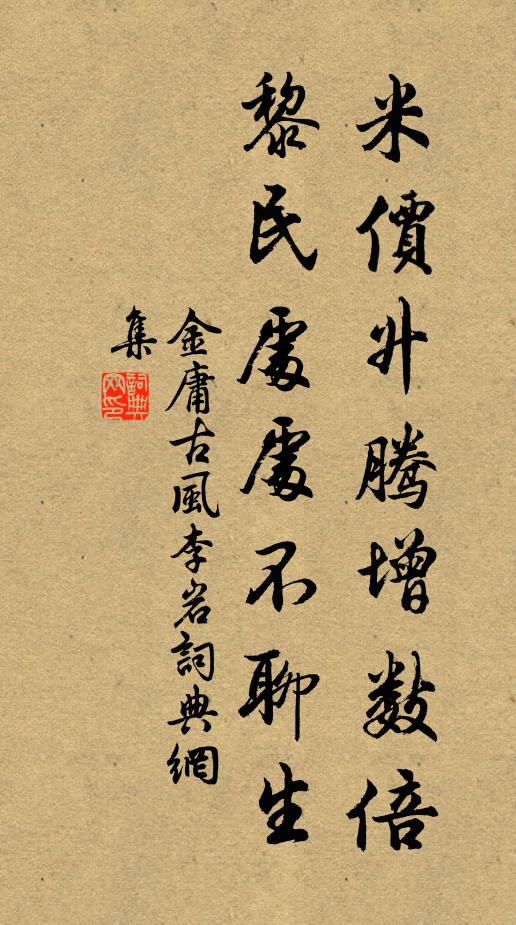 米價升騰增數倍
黎民處處不聊生
金庸古風李岩詞典網
集
詞典網印